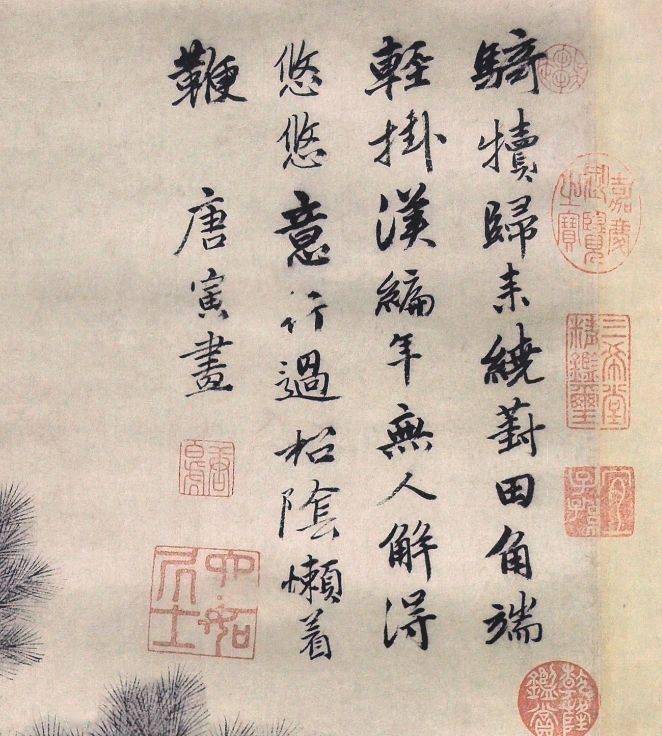 嘉慶御覽之寶
三希堂精鑑璽
宜子孫
乾隆鑑賞
騎犢歸来繞葑田角端
輕掛漢編年無人解得
悠悠意行過松陰懶着
鞭 唐寅畫
唐白虎
六如居士